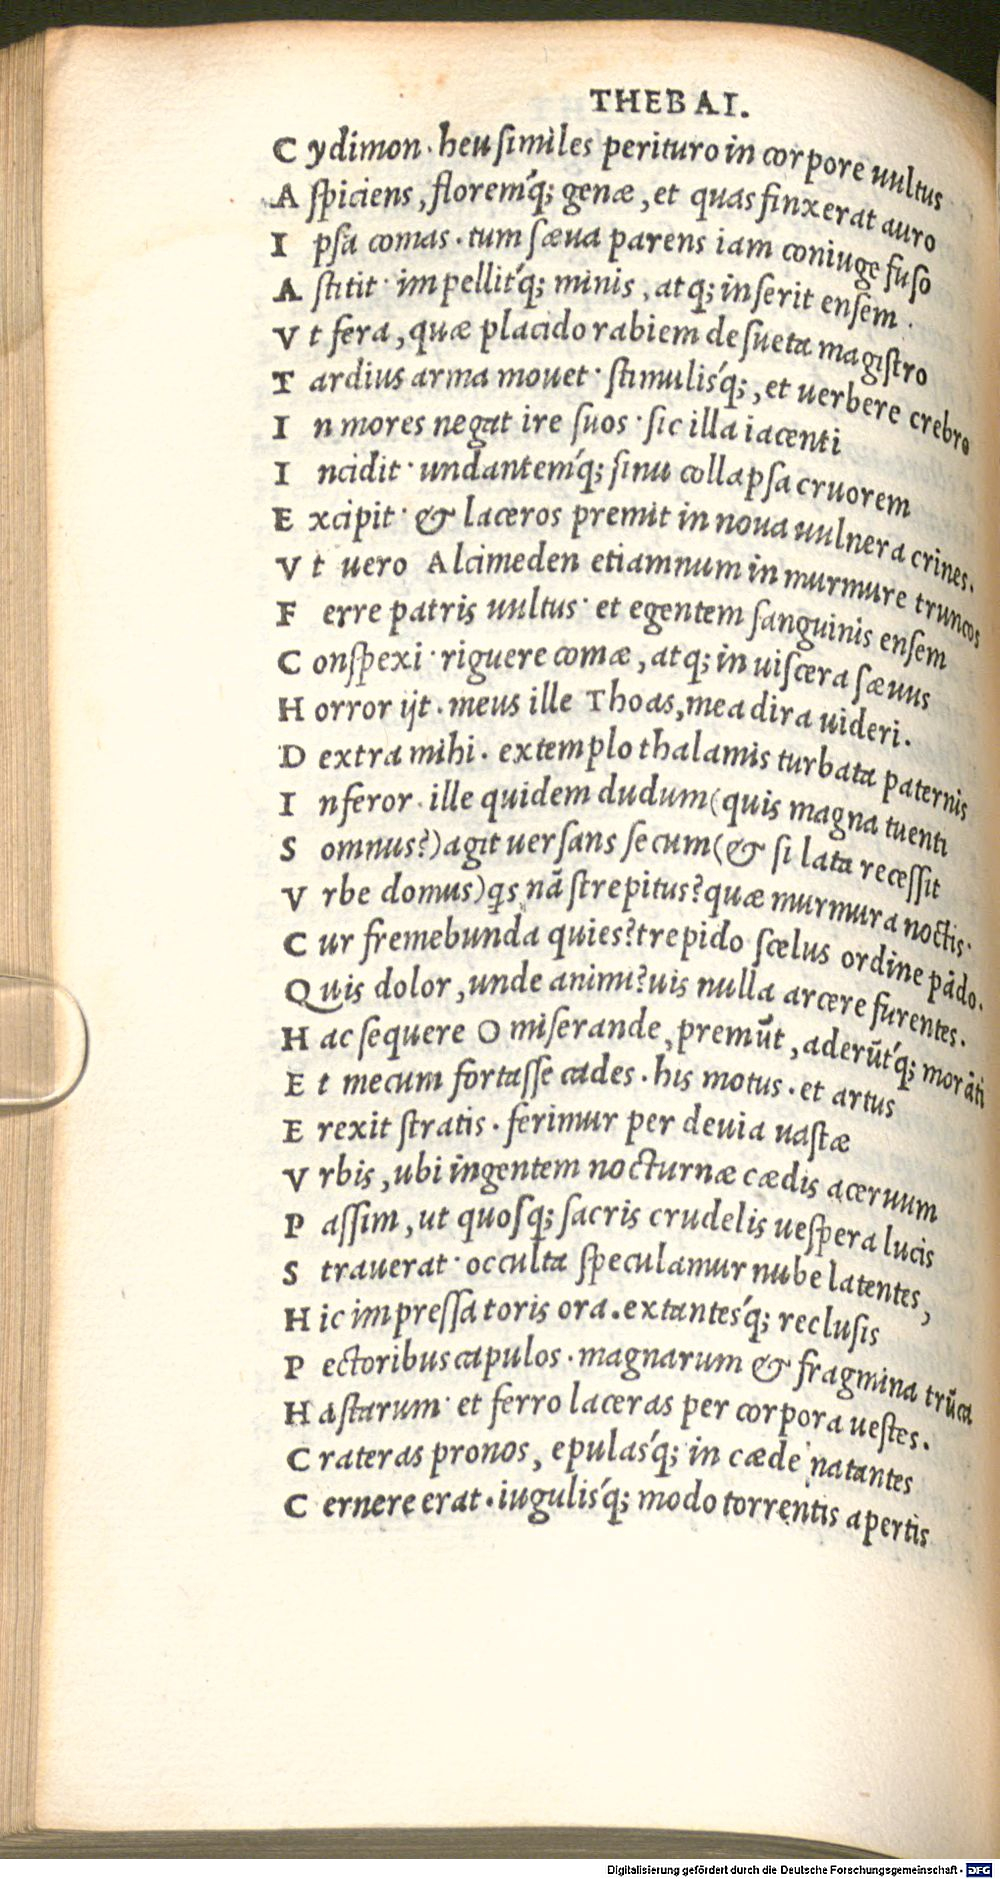 THEBAI.
C ydimon. heu ſimiles perituro in corpore uultus
A ſpiciens, florem'q; genæ, et quas finxerat auro
I pſa comas. tum ſæua parens iam coniuge fuſo
A ſtitit. impellit'q; minis, atq; inſerit enſem.
V t fera, quæ placido rabiem deſueta magiſtro
T ardius arma mouet. ſtimulis'q;, et uerbere crebro
I n mores negat ire ſuos. ſic illa iacenti
I ncidit. undantem'q; ſinu collapſa cruorem
E xcipit. & laceros premit in noua uulnera crines.
V t uero Alcimeden etiamnum in murmure truncos
F erre patris uultus. et egentem ſanguinis enſem
C onſpexi. riguere comæ, atq; in uiſcera ſæuus
H orror ijt. meus ille Thoas, mea dira uideri.
D extra mihi. extemplo thalamis turbata paternis
I nferor. ille quidem dudum (quis magna tuenti
S omnus?) agit uerſans ſecum (& ſi lata receſſit
V rbe domus) q̃s nā ſtrepitus? quæ murmura noctis.
C ur fremebunda quies? trepido ſcelus ordine pādo.
Q uis dolor, unde animi? uis nulla arcere furentes.
H ac ſequere O miſerande, premūt, aderūt'q; morāti
E t mecum fortaſſe cades. his motus. et artus
E rexit ſtratis. ferimur per deuia uaſtæ
V rbis, ubi ingentem nocturnæ cædis aceruum
P aſſim, ut quoſq; ſacris crudelis ueſpera lucis
S trauerat. occulta ſpeculamur nube latentes,
H ic impreſſa toris ora. extantes'q; recluſis
P ectoribus capulos. magnarum & fragmina trūca
H aſtarum. et ferro laceras per corpora ueſtes.
C rateras pronos, epulas'q; in cæde natantes
C ernere erat. iugulis'q; modo torrentis apertis
Digitalisierung gefördert durch die Deutsche Forschungsgemeinschaft - DFG